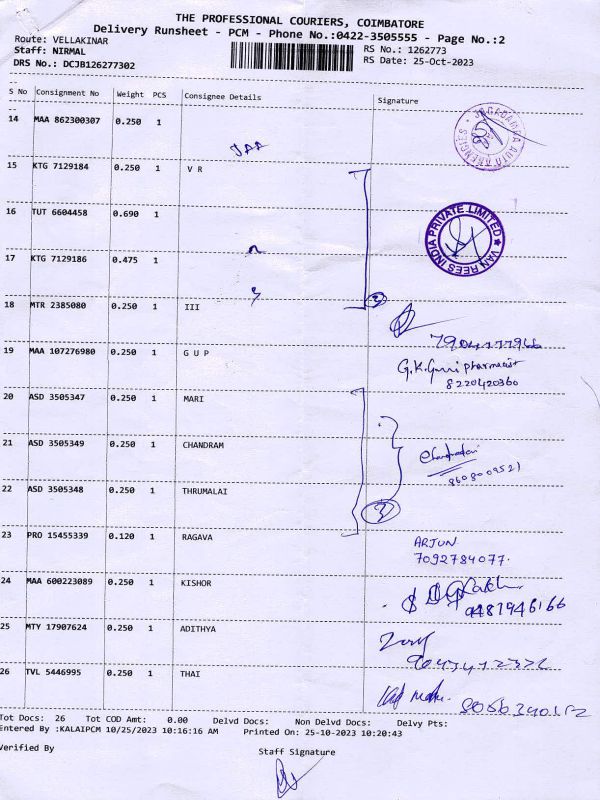 THE PROFESSIONAL COURIERS, COIMBATORE
Delivery Runsheet - PCM - Phone No.:0422-3505555 - Page No.:2
Route: VELLAKINAR
Staff: NIRMAL RS No.: 1262773
DRS No.: DCJB126277302 RS Date: 25-Oct-2023
S No Consignment No Weight PCS Consignee Details Signature
14 MAA 862300307 0.250 1
JAGADAMBA AUTO AGENCIES
15 KTG 7129184 0.250 1 V R
16 TUT 6604458 0.690 1
VAN REES INDIA PRIVATE LIMITED
17 KTG 7129186 0.475 1
3
18 MTR 2385080 0.250 1 III
19 MAA 107276980 0.250 1 G U P
pharmacist
8220420360
20 ASD 3505347 0.250 1 MARI
21 ASD 3505349 0.250 1 CHANDRAM
8608009521
22 ASD 3505348 0.250 1 THRUMALAI
3
23 PRO 15455339 0.120 1 RAGAVA
ARJUN
7092784077.
24 MAA 600223089 0.250 1 KISHOR
9487946166
25 MTY 17907624 0.250 1 ADITHYA
26 TVL 5446995 0.250 1 THAI
Tot Docs: 26 Tot COD Amt: 0.00 Delvd Docs: Non Delvd Docs: Delvy Pts:
Entered By :KALAIPCM 10/25/2023 10:16:16 AM Printed On: 25-10-2023 10:20:43
Verified By Staff Signature